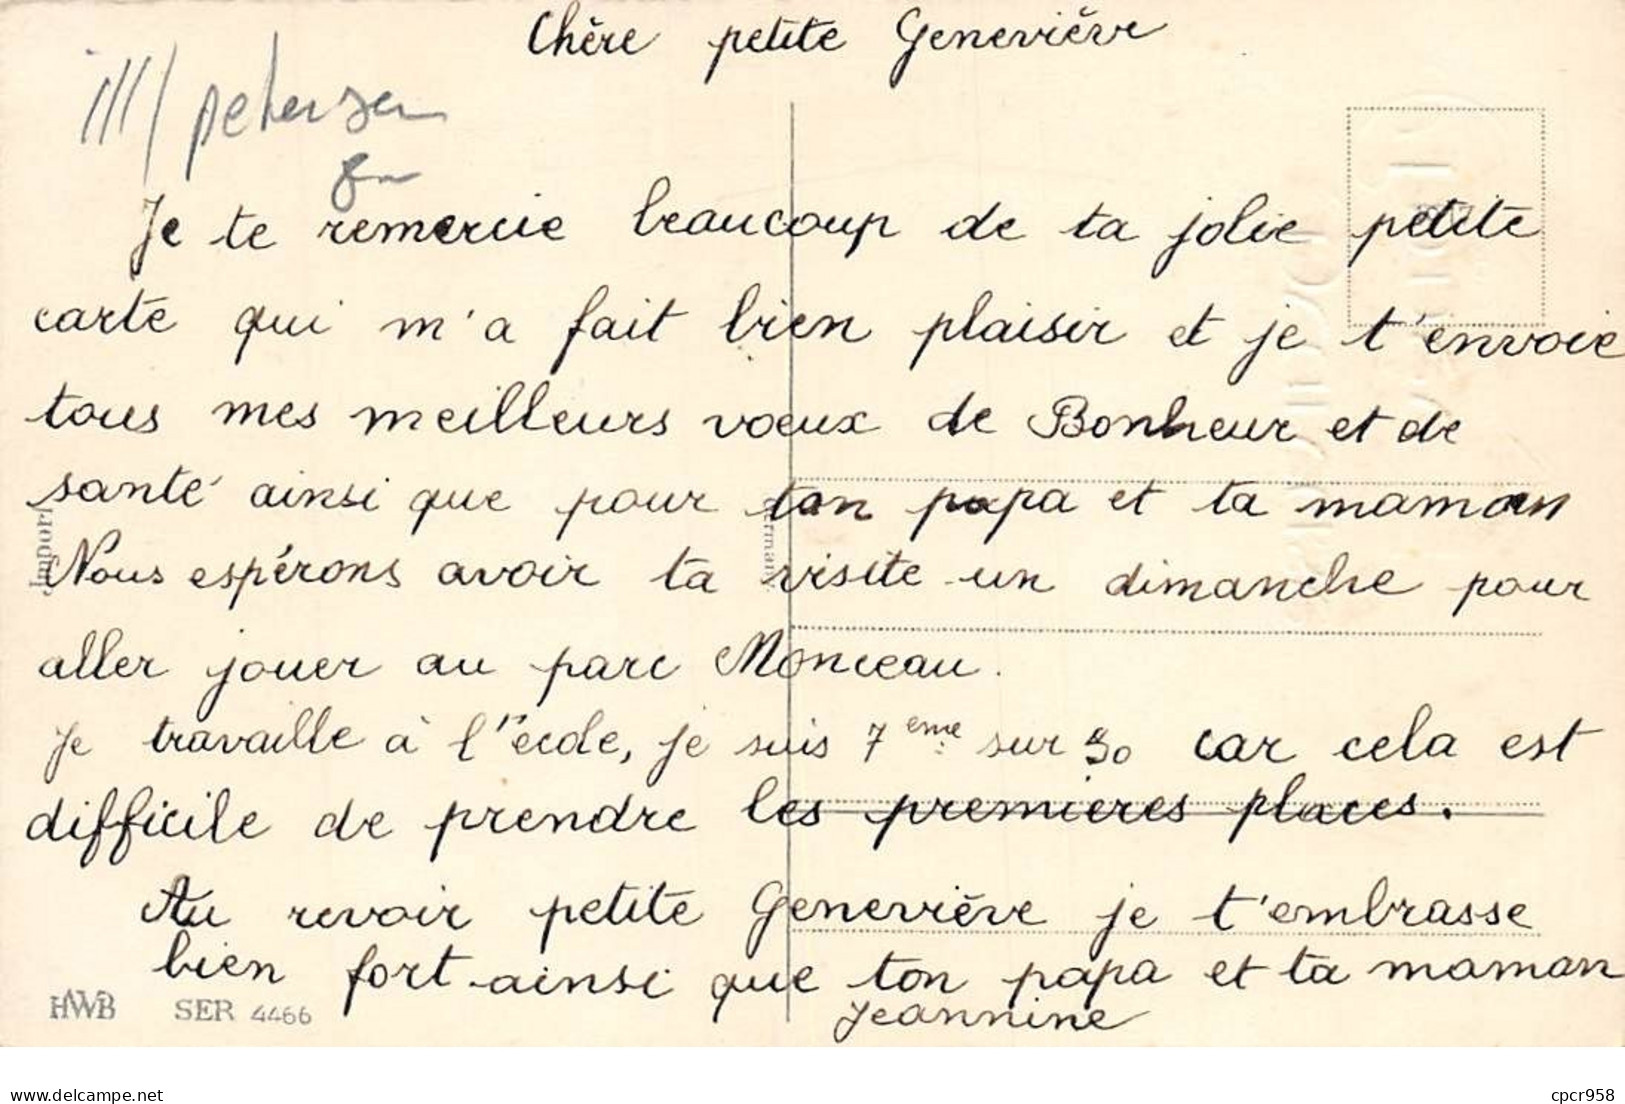 Chère petite Geneviève
ill/petersen
8
Je te remercie beaucoup de ta jolie petite
carte qui m'a fait bien plaisir et je t'envoie
tous mes meilleurs voeux de Bonheur et de
santé ainsi que pour ton papa et ta maman
Import Germany
Nous espérons avoir ta visite un dimanche pour
aller jouer au parc Monceau.
Je travaille à l'école, je suis 7 eme sur 30 car cela est
difficile de prendre les premieres places.
Au revoir petite Geneviève je t'embrasse
bien fort ainsi que ton papa et ta maman
HWB SER 4466
Jeannine
delcampe.net
cpcr958